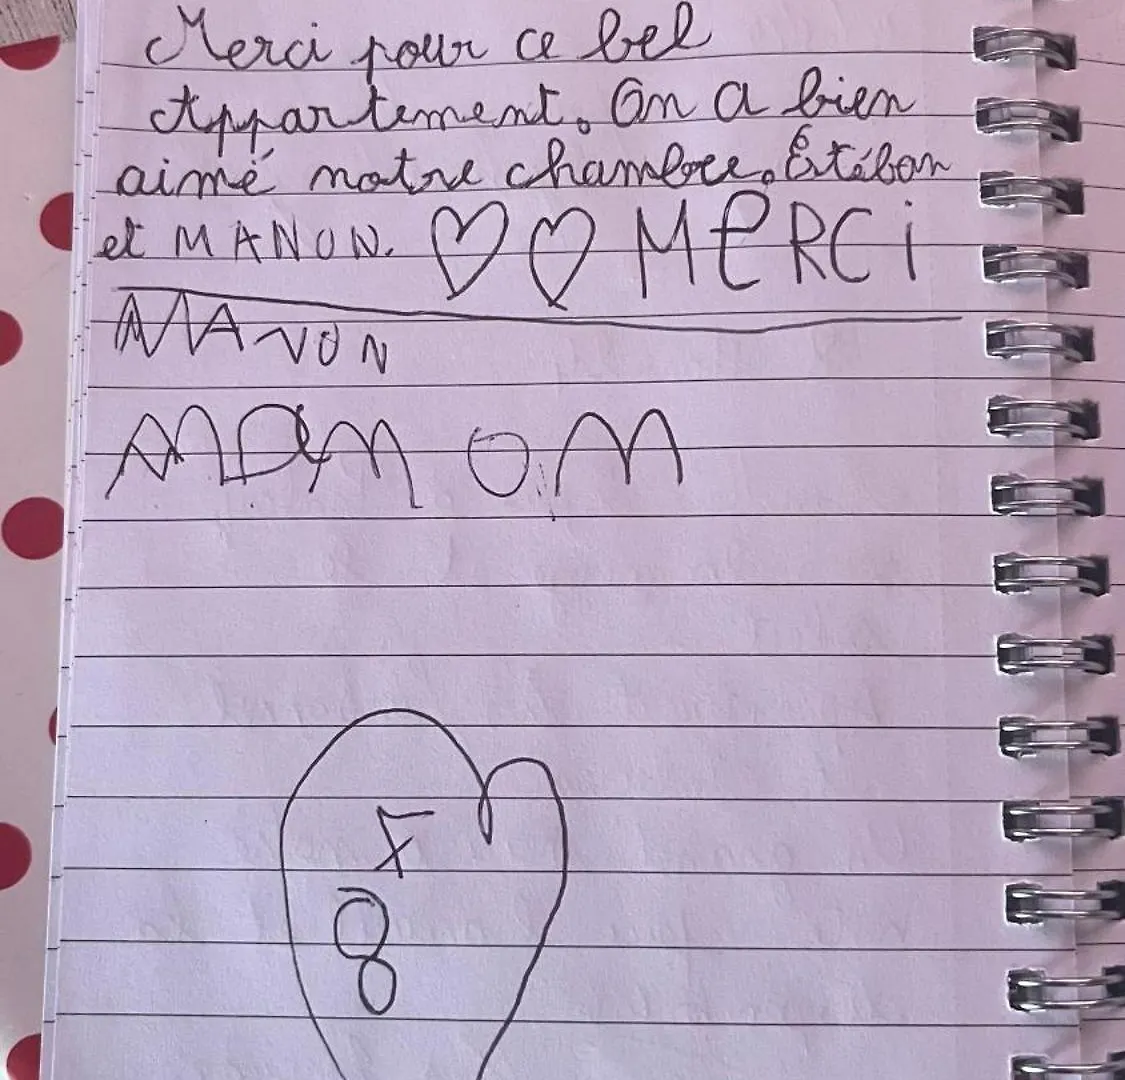 Merci pour ce bel
Appartement. On a bien
aimé notre chambre. Estéban
et MANON. ♡♡ MERCi
MANON
8